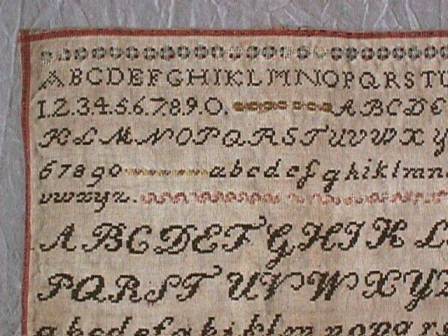 ABCDEFGHIKLMNOPQRST
1.2.3.4.5.6.7.8.9.0. ABCD
KLMNOPQRSTUVWXY
67890 abcdefghiklmn
vwxyz.
ABCDEFGHIKL
PQRSTUVWXYZ
abcdefghiklmnopq